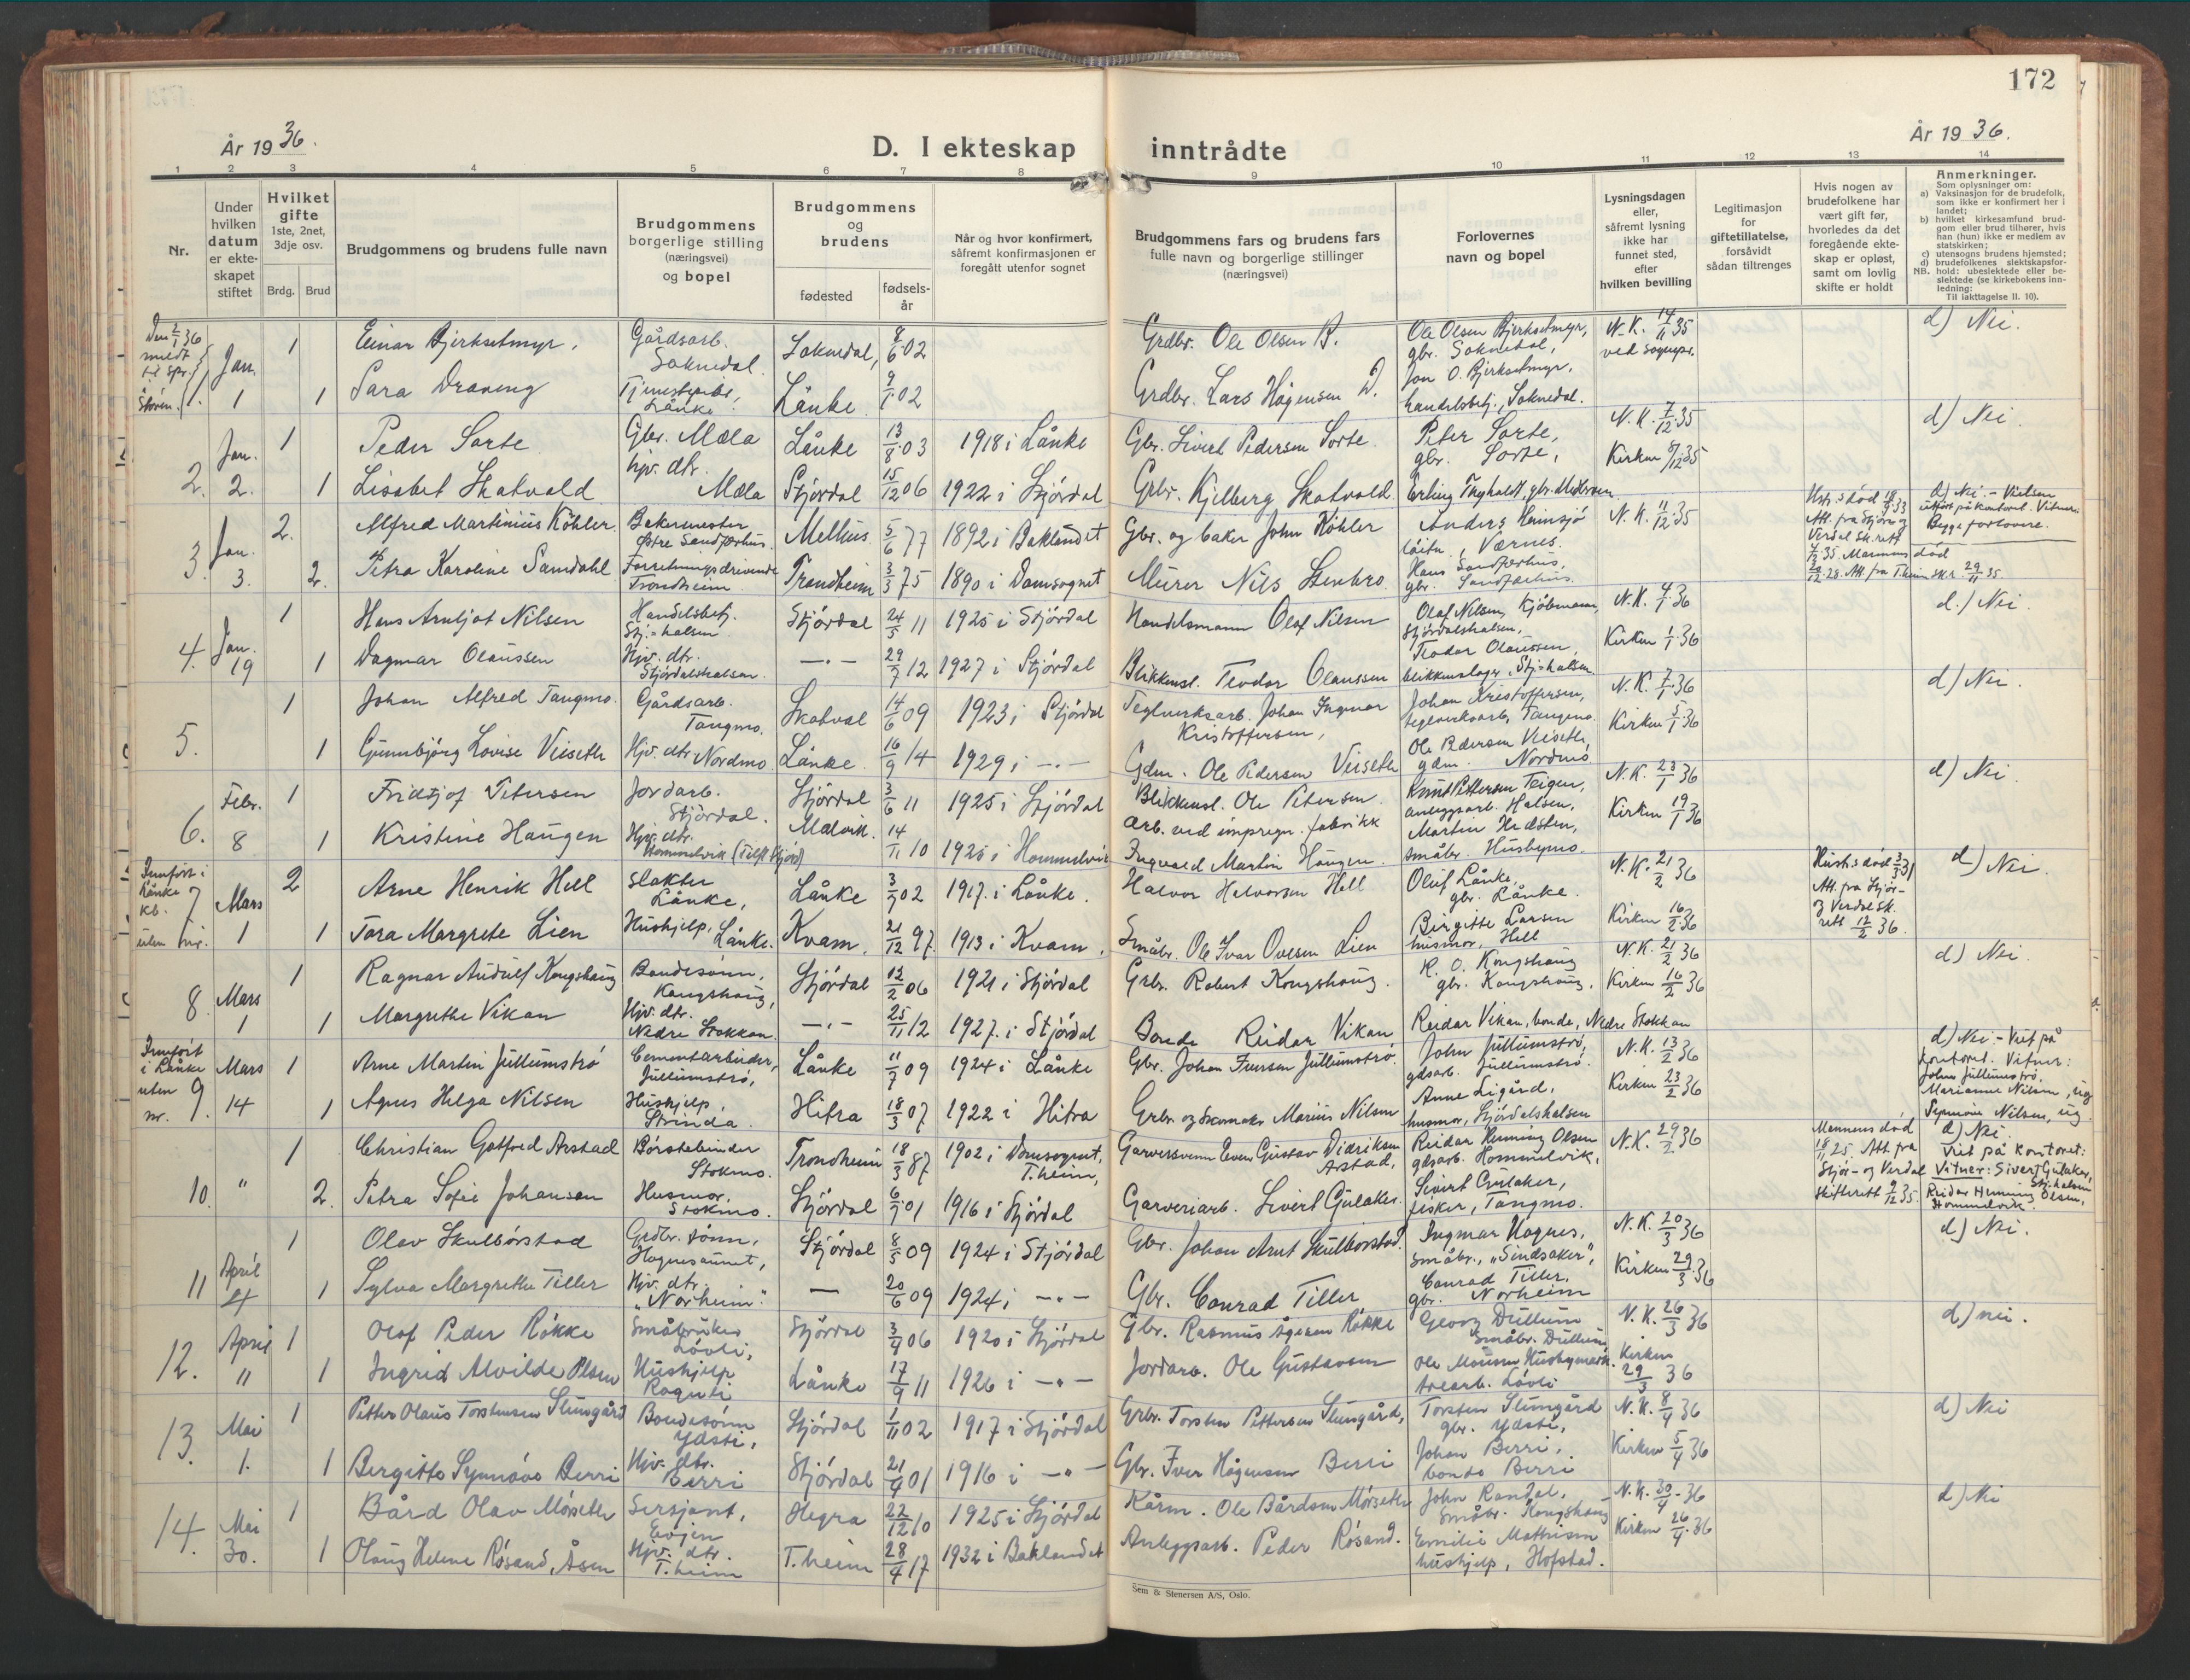 172
År 1936.
D. I ekteskap inntrådte
År 1936.
1 2 3 4 5 6 7 8 9 10 11 12 13 14
Nr.
Under hvilken datum er ekteskapet stiftet
Hvilket gifte 1ste, 2net, 3dje osv.
Brdg. Brud
Brudgommens og brudens fulle navn
Brudgommens borgerlige stilling (næringsvei) og bopel
Brudgommens og brudens
fødested
fødselsår
Når og hvor konfirmert, såfremt konfirmasjonen er foregått utenfor sognet
Brudgommens fars og brudens fars fulle navn og borgerlige stillinger (næringsvei)
Forlovernes navn og bopel
Lysningsdagen eller, såfremt lysning ikke har funnet sted, efter hvilken bevilling
Legitimasjon for giftetillatelse, forsåvidt sådan tiltrenges
Hvis nogen av brudefolkene har vært gift før, hvorledes da det foregående ekteskap er opløst, samt om lovlig skifte er holdt
Anmerkninger.
Som oplysninger om:
a) Vaksinasjon for de brudefolk, som ikke er konfirmert her i landet;
b) hvilket kirkesamfund brudgom eller brud tilhører, hvis han (hun) ikke er medlem av statskirken;
c) utensogns brudens hjemsted;
d) brudefolkenes slektskapsforhold: ubeslektede eller beslektede (se kirkebokens innledning:
NB.
Til iakttagelse II. 10).
Den 2/1 36 meldt til spr. i Støren. 1. Jan. 1
1 Einar Bjerksetmyr, Gårdsarb. Soknedal. Soknedal, 8/6 02 Grdbr. Ole Olsen B. Ole Olsen Bjerksetmyr, gbr. Soknedal, N.K. 14/11 35 ved sognepr. d) Nei.
1 Sara Draveng Lånke. Lånke 9/1 02 Grdbr. Lars Hågensen D. Jon O. Bjerksetmyr, handelsbetj., Soknedal.
2. Jan. 2.
1 Peder Sorte Gbr. Mæla Lånke 13/8 03 1918 i Lånke Gbr. Sivert Pedersen Sorte. Peter Sorte, gbr. Sorte, N.K. 7/12 35 d) Nei.
1 Lisabet Skatvold hjv. dtr. Mæla Stjórdal 15/12 06 1922 i Stjórdal Grbr. Kjelberg Skatvold. Kirken 8/12 35
3. Jan. 3.
2. Alfred Martinius Köhler Bakermester Melhus 5/6 77 1892 i Baklandet Gbr. og baker John Köhler Anders , Værnes. N.K. 11/12 35 d) Nei. - Vielsen utført på kontoret. Vitner: Begge forlovere.
2. Petra Karoline Samdahl Forretningsdrivende Trondheim Trondheim 3/3 75 1890 i Domsognet Murer Nils Stenbro. Hans Sandferhus, gbr. Sandferhus. Mannens død Att. fra T.heim sk.r. 29/11 35.
4. Jan. 19
1 Hans Arnljot Nilsen Handelsbetj. Stj.=halsen Stjórdal 24/5 11 1925 i Stjórdal Handelsmann Olaf Nilsen Olaf Nilsen, Kjöbmann, Stjórdalshalsen, N.K. 4/1 36 d.) Nei.
1 Dagmar Olaussen Hjv. dtr. Stjórdalshalsen. —"— 29/7 12 1927 i Stjórdal Blikkensl. Teodor Olaussen Teodor Olaussen, blikkenslager, Stj=halsen Kirken 1/1 36
5.
1 Johan Alfred Tangmo. Gårdsarb. Tangmo. Skatval 14/6 09 1923 i Stjórdal Teglverksarb. Johan Ingmar Kristoffersen, Johan Kristoffersen, teglverksarb, Tangmo. N.K. 7/1 36 d) Nei.
1 Gunnbjörg Lovise Veiseth Hjv. dtr. Nordmo Lånke 16/9 14 1929 i —"— Gdm. Ole Pedersen Veiseth Ole Pedersen Veiseth, gdm. Nordmo Kirken 5/1 36
6. Febr. 8
1 Fridtjof Petersen Jordarb. Stjórdal. Stjórdal 3/6 11 1925 i Stjórdal Blikkensl. Ole Petersen. Knut Pettersen Teigen, anleggsarb. Halsen, N.K. 23/1 36 d) Nei.
1 Kristine Haugen Hjv. dtr. Hommelvik Malvik. 14/11 10 1925 i Hommelvik Arb. ved impregn. fabrikk Ingvald Martin Haugen. Martin Hræsten, småbr. Husbymo. Kirken 19/1 36
Innført i Lånke kb. uten nr. 7 Mars 1
2 Arne Henrik Hell slakter Lånke, Lånke 3/7 02 1917. i Lånke. Halvor Halvorsen Hell Oluf Lånke, gbr. Lånke. N.K. 21/2 36 Hustr. død 3/3 31 Att. fra Stjór- og Verdal sk.rett 12/2 36. d) Nei.
1 Tora Margrete Lien Hushjelp, Lånke. Kvam. 21/12 97. 1913 i Kvam. Småbr. Ole Ivar Ovesen Lien Birgitte Larsen husmor, Hell Kirken 16/2 36
8. Mars 1
1 Ragnar Audulf Kongshaug Bondesønn, Kongshaug, Stjórdal 12/2 06 1921 i Stjórdal Grbr. Robert Kongshaug. R. O. Kongshaug gbr. Kongshaug. N.K. 21/2 36 Kirken 16/2 36 d) Nei.
1 Margrethe Vikan Hjv. dtr. Nedre Stokkan —"— 25/11 12 1927. i Stjórdal Bonde Reidar Vikan Reidar Vikan, bonde, Nedre Stokkan
Innfört i Lånke uten nr. 9. Mars 14
1 Arne Martin Jullumströ Cementarbeider, Jullumströ, Lånke 11/7 09 1924 i Lånke Gbr. Johan Iversen Jullumströ. John Jullumströ, gdsarb. Jullumströ. N.K. 13/2 36 d) Nei. - Viet på kontoret. Vitner: John Jullumströ, Marianne Nilsen, ug Synnöve Nilsen, ug.
1 Agnes Helga Nilsen Hushjelp, Strinda. Hitra 18/3 07 1922 i Hitra Grbr. og skomaker Marius Nilsen Anne Ligård, husmor, Stjórdalshalsen Kirken 23/2 36
10. "
1 Christian Gotfred Arstad Börstebinder Stokmo. Trondheim 18/3 87 1902 i Domsognet, T.heim, Garversvenn Even Gustav Didriksen Arstad, Reidar Henning Olsen gdsarb. Hommelvik, N.K. 29/2 36 Mannens død 18/11 25. Att. fra Stjór- og Verdal skifterett 9/12 35. d) Nei. Viet på kontoret: Vitner: Sivert Gulaker, Stj.halsen Reidar Henning Olsen, Hommelvik.
2. Petra Sofie Johansen Husmor. Stokmo. Stjórdal 6/7 01 1916 i Stjórdal Garveriarb. Sivert Gulaker. Sivert Gulaker, fisker, Tangmo.
11 April 4
1 Olav Skulbörstad Grdbr. sönn, Hognesaunet, Stjórdal 8/5 09 1924 i Stjórdal Gbr. Johan Arnt Skulborstad. Ingmar Hognes, småbr., "Sindsaker", N.K. 20/3 36 d) Nei.
1 Sylva Margrethe Tiller Hjv. dtr. "Norheim". — 20/6 09 1924 i —"— Gbr. Conrad Tiller Conrad Tiller, gbr. Norheim Kirken 29/3 36
12. April "
1 Olaf Peder Rökke Småbruker Lövli, Stjórdal 3/4 06 1920 i Stjórdal Gbr. Rasmus Ågesen Rökke Georg Dullum Småbr. Dullum N.K. 26/3 36 d) nei.
1 Ingrid Alvilde Olsen Hushjelp Lånke 17/9 11 1926 i —"— Jordarb. Ole Gustavsen trearb. Lövli Kirken 29/3 36
13. Mai 1.
1 Petter Olaus Torstensen Slungård Bondesönn Ydsti, Stjórdal 1/11 02 1917 i Stjórdal Grbr. Torsten Pettersen Slungård, Torsten Slungård gbr. Ydsti, N.K. 8/4 36 d) Nei
1 Bergitte Synnöve Berri Hjv. dtr. Berri Stjórdal 21/4 01 1916 i —"— Gbr. Iver Hågensen Berri Johan Berri, bonde Berri Kirken 5/4 36
14. Mai 30.
1 Bård Olav Mörseth Sersjant, Evjen Hegra 22/12 10 1925 i Stjórdal Kårm. Ole Bårdsen Mörseth John Randal, Småbr. Kongshaug N.K. 30/4 36 d) Nei
1 Olaug Helene Rösand, Åsen Hjv. dtr. T.heim T.heim 28/4 17 1932 i Baklandet Anleggsarb. Peder Rösand. Emilie Mathisen hushjelp, Hofstad. Kirken 26/4 36
Sem & Stenersen A/S, Oslo.